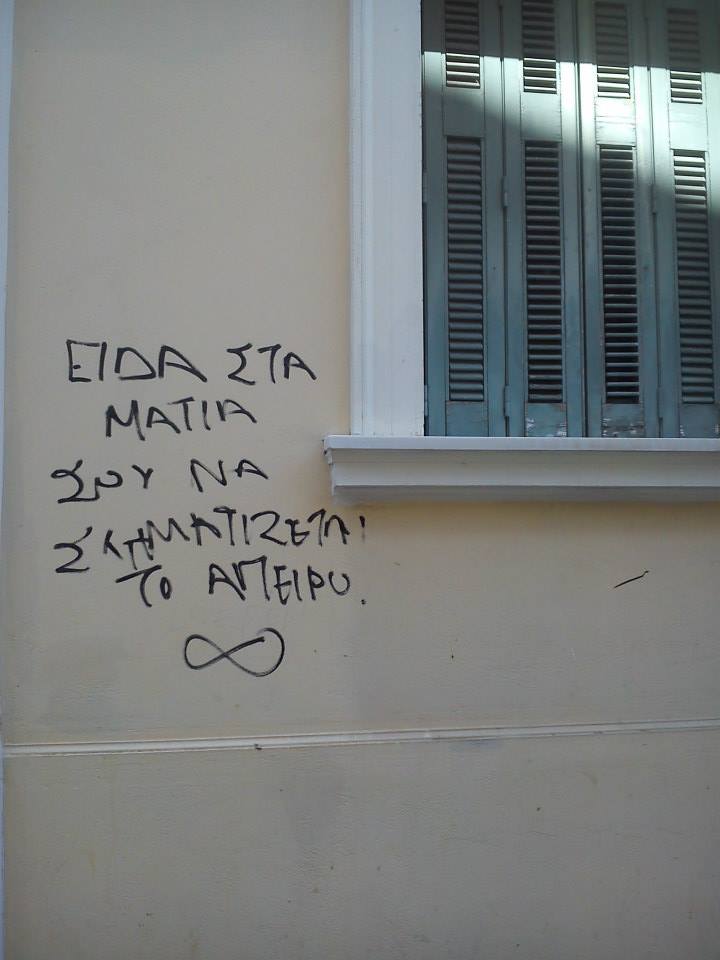 ΕΙΔΑ ΣΤΑ
ΜΑΤΙΑ
ΣΟΥ ΝΑ
ΣΧΗΜΑΤΙΖΕΤΑΙ
ΤΟ ΑΠΕΙΡΟ.
∞